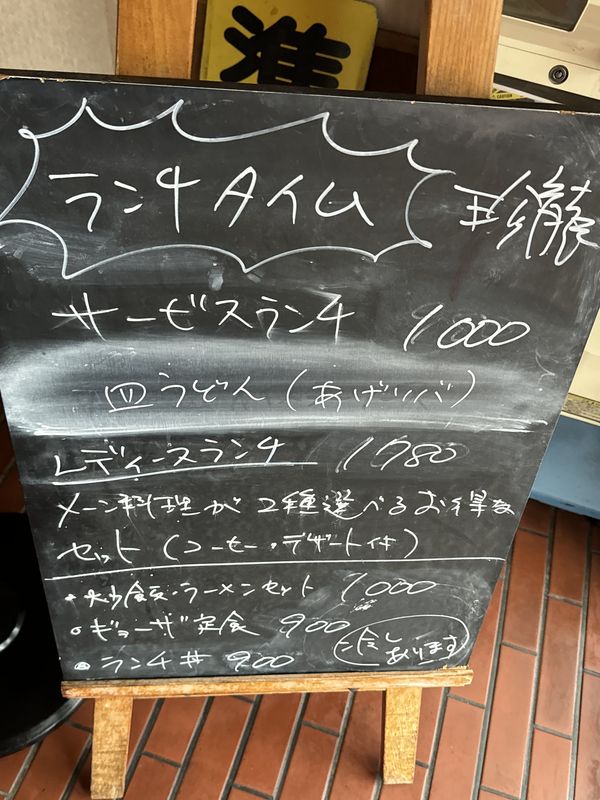 準
ランチタイム 珍瀧
サービスランチ 1000
皿うどん(あげソバ)
レディースランチ 1780
メーン料理が2種選べるお得な
セット(コーヒー・デザート付)
・炒飯・ラーメンセット 1000
○ギョーザ定食 900
○ランチ丼 900
冷し
あります